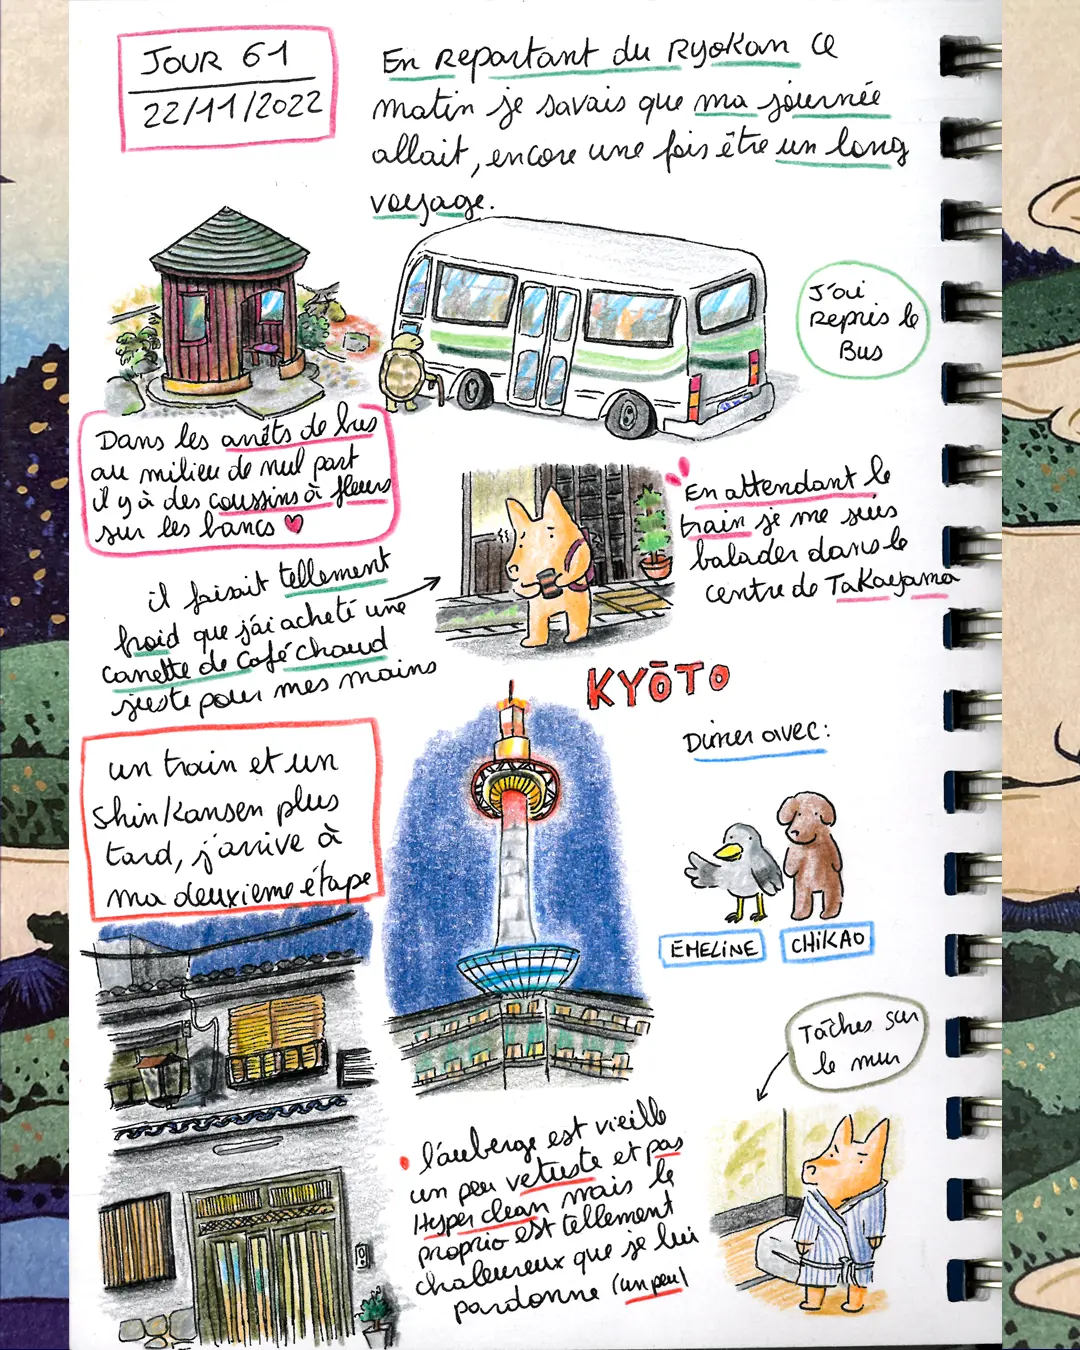 JOUR 61
22/11/2022
En repartant du Ryokan ce
matin je savais que ma journée
allait, encore une fois être un long
voyage.
J'ai
repris le
Bus
Dans les arrêts de bus
au milieu de nul part
il y à des coussins à fleurs
sur les bancs
En attendant le
train je me suis
balader dans le
centre de Takayama
il faisait tellement
froid que j'ai acheté une
canette de Café chaud
juste pour mes mains
KYŌTO
un train et un
Shinkansen plus
tard, j'arrive à
ma deuxieme étape
Diner avec:
EMELINE
CHIKAO
Tâches sur
le mur
l'auberge est vieille
un peu vetuste et pas
Hyper clean mais le
proprio est tellement
chaleureux que je lui
pardonne (un peu)